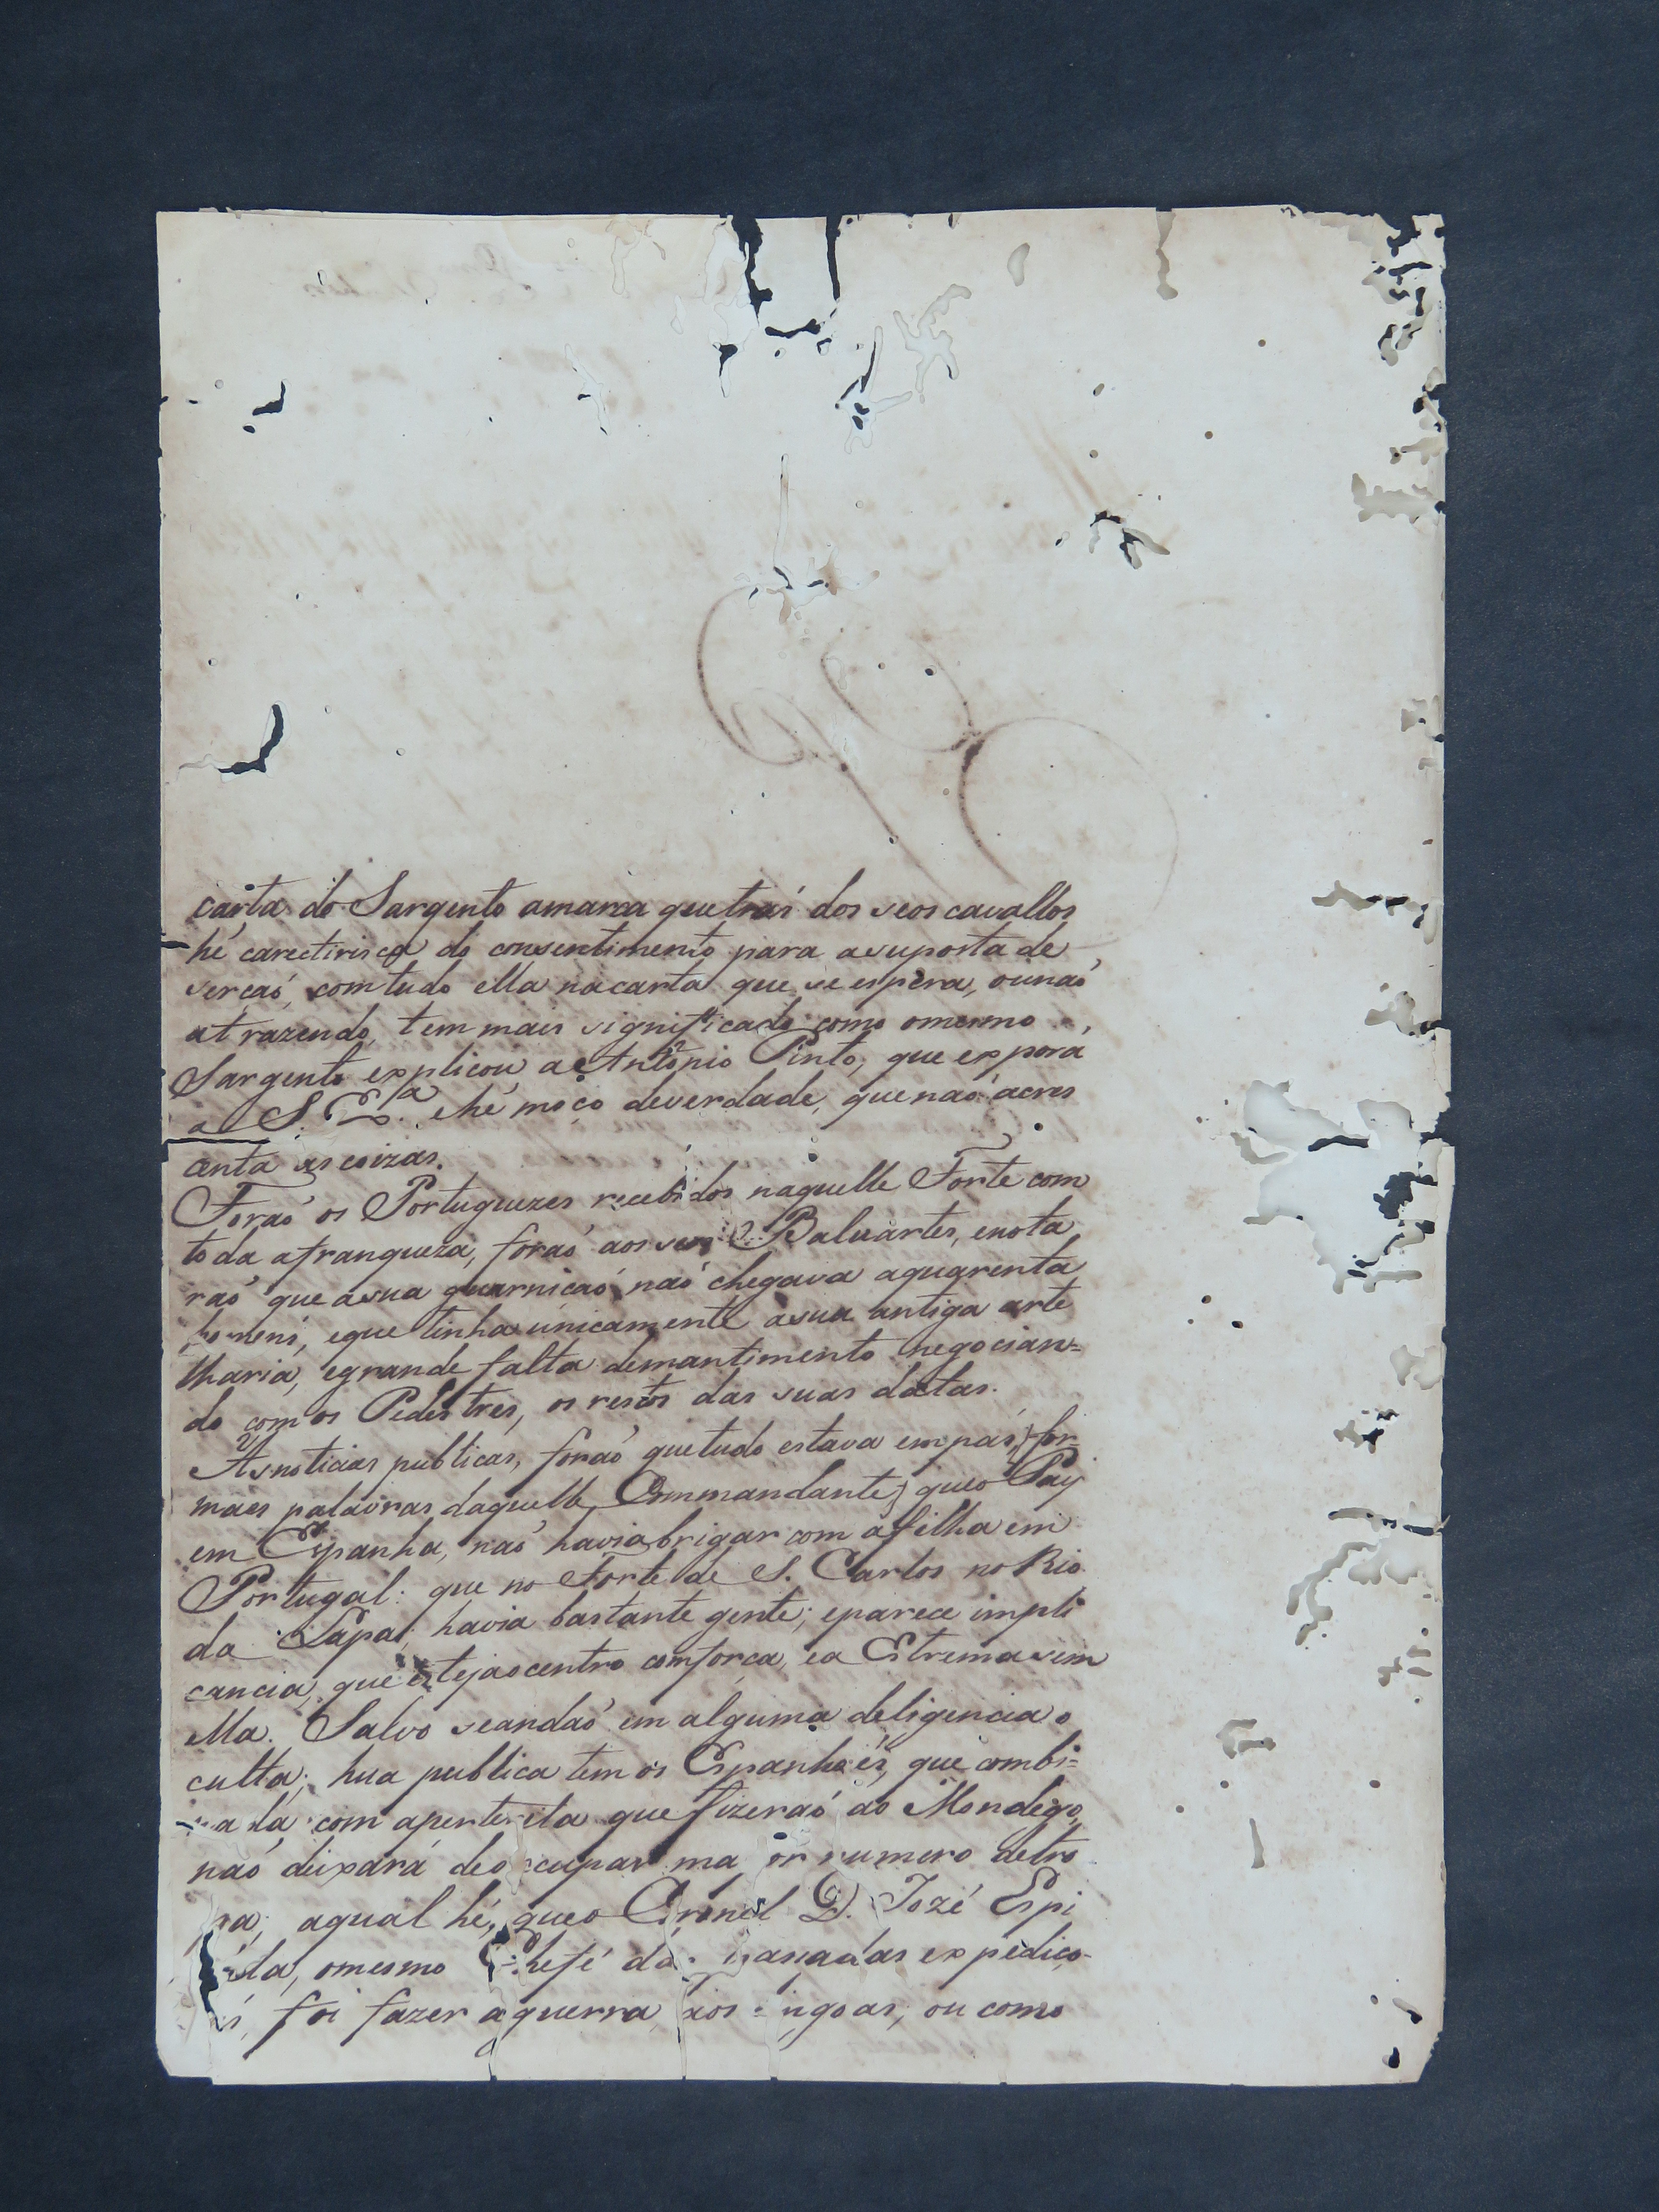 carta do Sargento amarca quetrás dos seos cavallos
hé carectirisca do consentimento para asuposta de
serçaõ, comtudo ella nacarta que se espéra, ounaõ
atrazendo, tem mais significado como omesmo
Sargento explicou a Antonio Pinto, que exporá
a S. Ex.ª ehé moço deverdade, quenaõ acres
centa as coizas.
Foraõ os Portuguezes recebidos naquelle Forte com
toda afranqueza, foraõ aos seos Baluartes, enota
raõ que asua guarniçaõ naõ chegava aquarenta
homens, eque tinha unicamente asua antiga arte
lharia, egrande falta demantimento negocian=
do com os Pedestres, os restos das suas datas.
As noticias publicas, foraõ quetudo estava em pás, (for
maes palavras daquelle Commandante) queo Pay
em Espanha, naõ havia brigar com afilha em
Portugal: que no Forte de S. Carlos no Rio
da Lapa, havia bastante gente; eparece impli
cancia, que estejaocentro comforca, ea Estrema sem
ella. Salvo seandaõ em alguma deligencia o
culta; hua publica tem os Espanhoés, que combi=
nada com aperterita que fizeraõ ao Mondego,
naõ deixará deoccupar maior numero detro
pa; aqual hé, queo Coronel D. Jozé Espi
óla, omesmo Chefe das passadas expediço
és, foi fazer aguerra aos ingoas, ou como